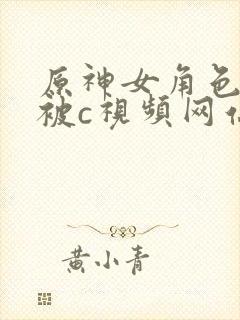 原神女角色
被c視頻网
黄小青